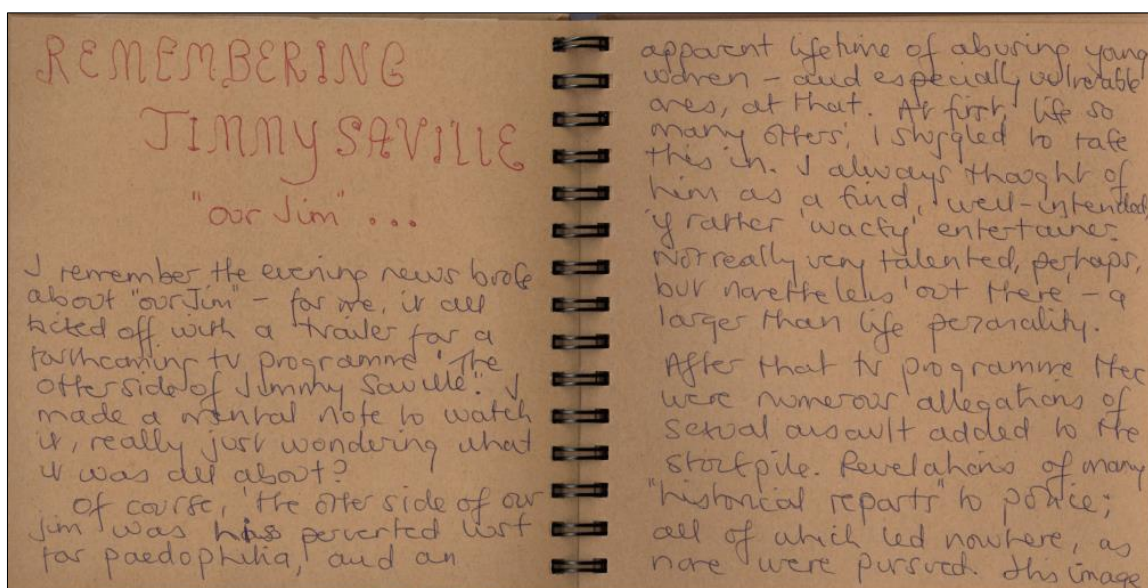 REMEMBERING
JIMMY SAVILLE
"our Jim" ...
I remember the evening news broke
about "our Jim" - for me, it all
kicked off with a trailer for a
forthcoming tv programme 'The
other side of Jimmy Saville'. I
made a mental note to watch
it, really just wondering what
it was all about?
Of course, 'the other side of our
Jim' was his perverted lust
for paedophilia, and an
apparent lifetime of abusing young
women - and especially vulnerable
ones, at that. At first, like so
many others, I struggled to take
this in. I always thought of
him as a kind, well-intended
if rather 'wacky' entertainer.
Not really very talented, perhaps,
but nonetheless 'out there' - a
larger than life personality.
After that tv programme there
were numerous allegations of
sexual assault added to the
stockpile. Revelations of many
"historical reports" to police;
all of which led nowhere, as
none were pursued. This image